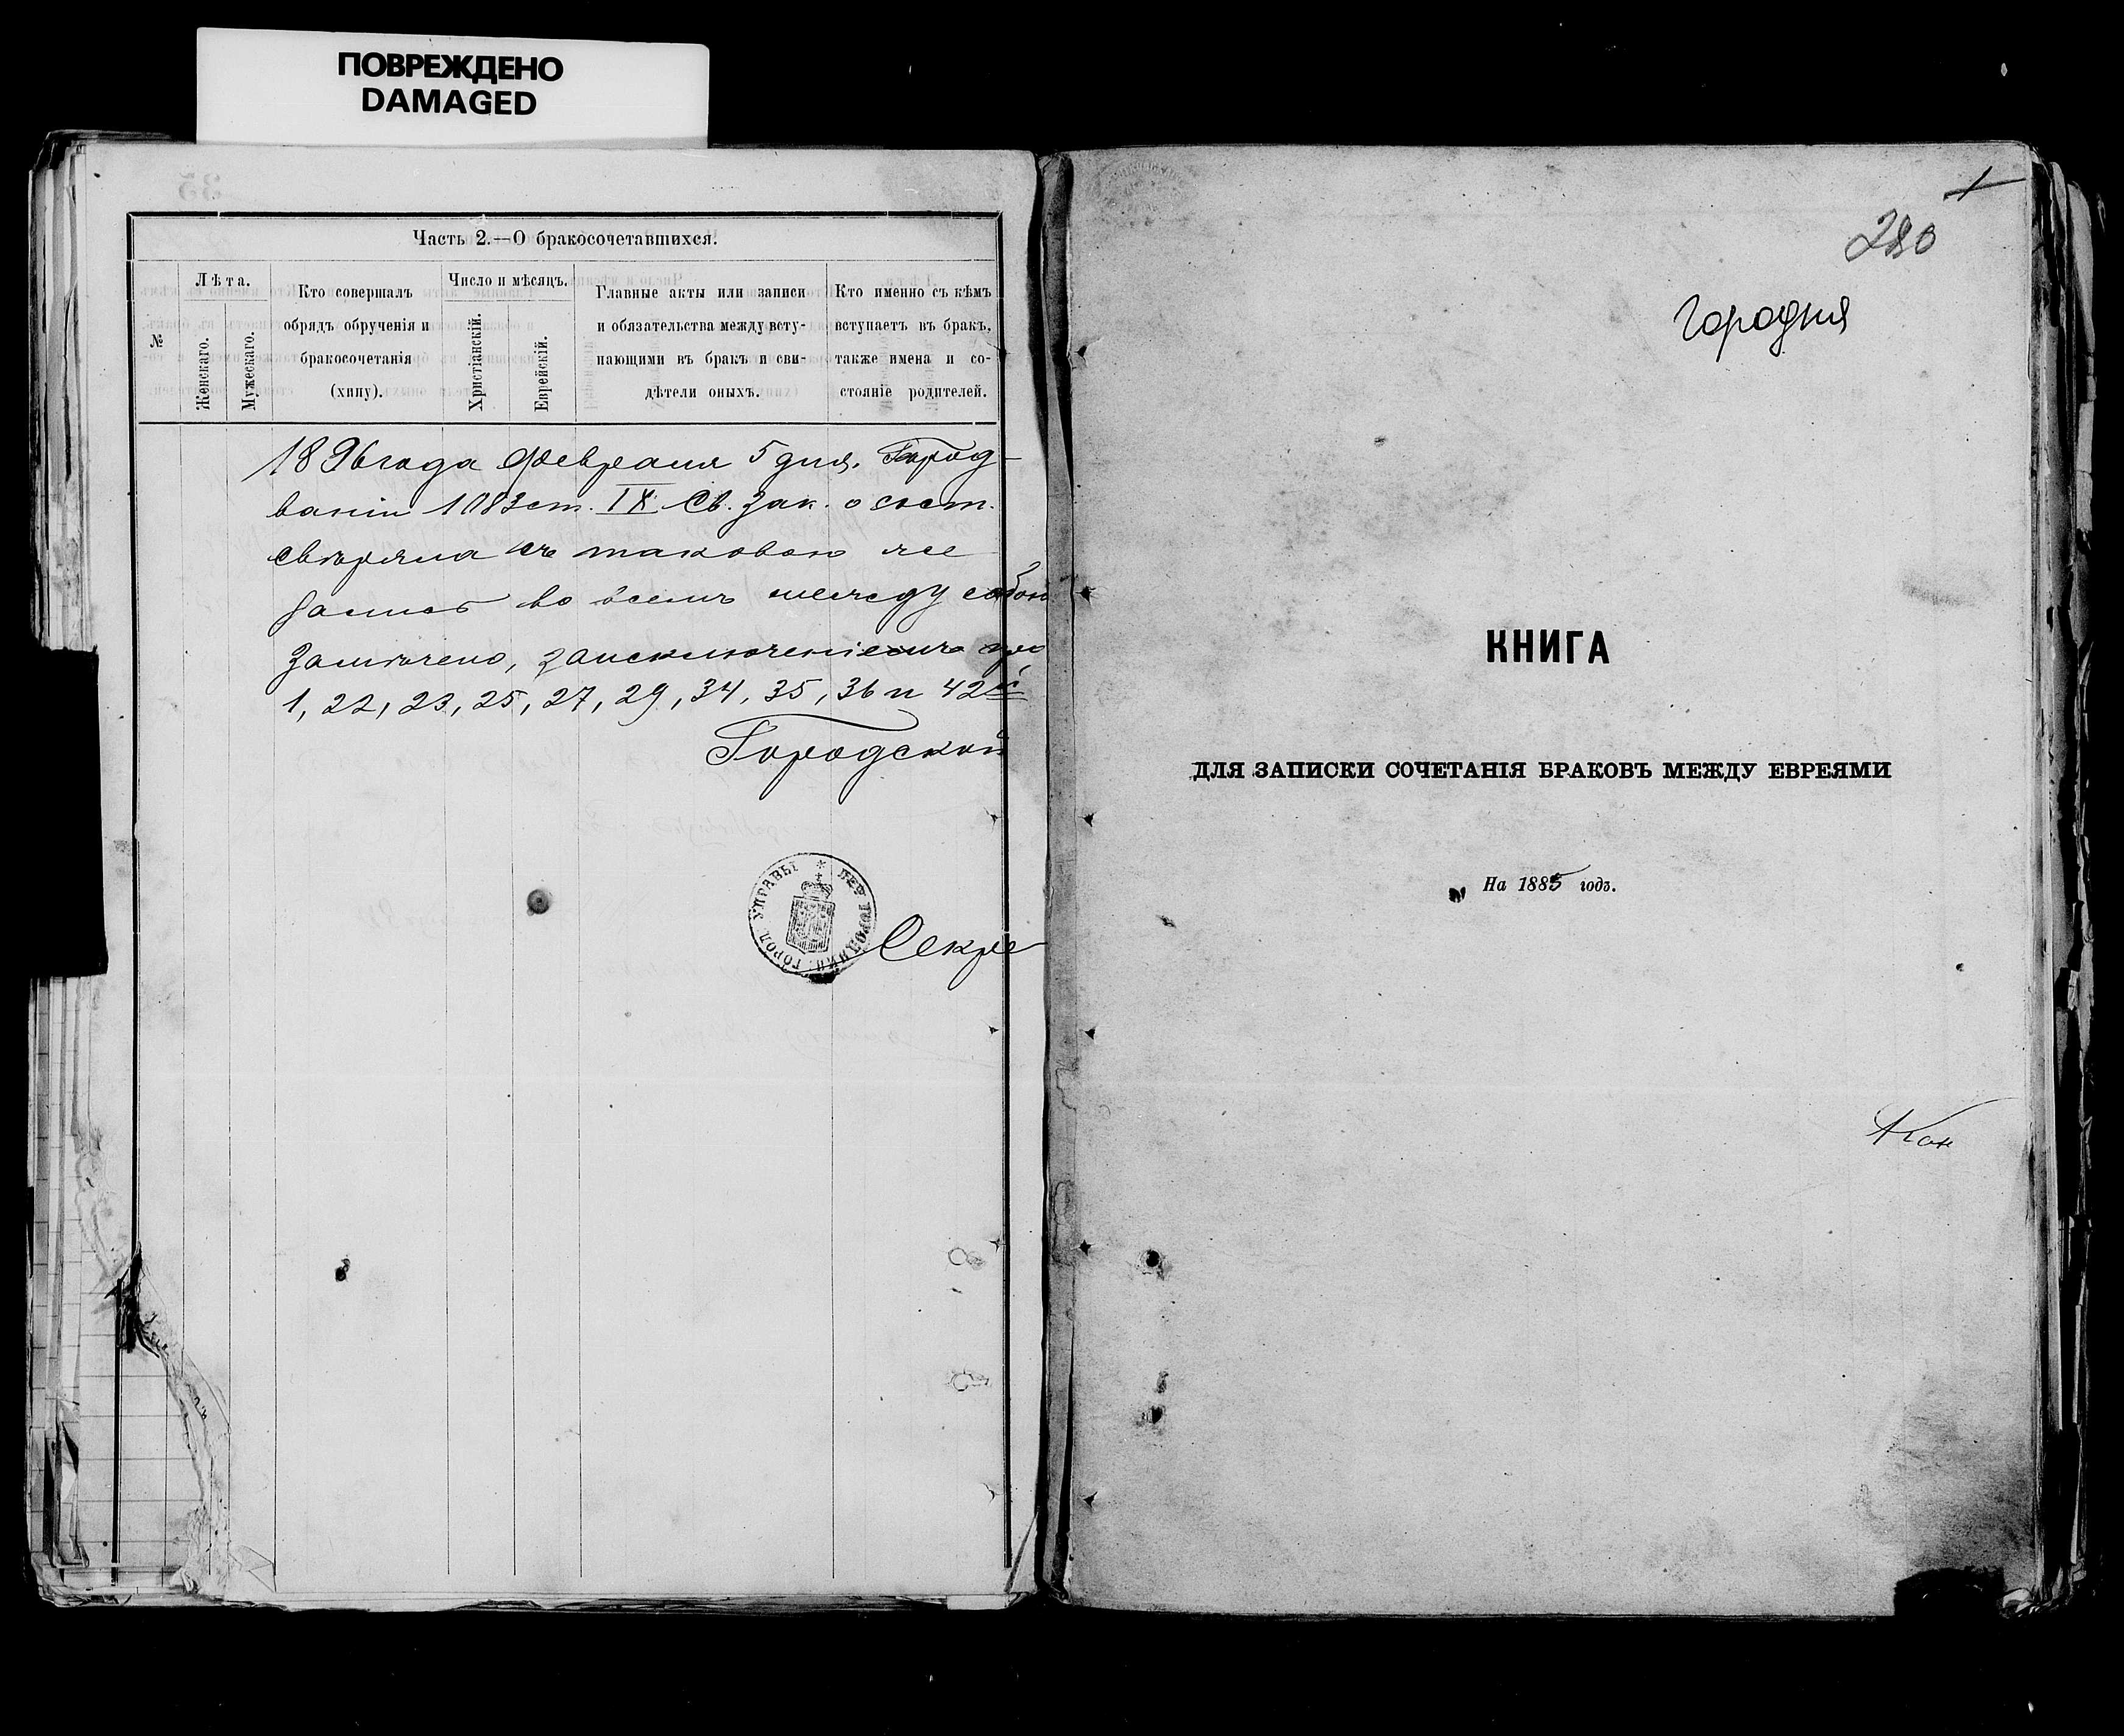 ПОВРЕЖДЕНО
DAMAGED
Часть 2.—О бракосочетавшихся.
№
Лѣта.
Женскаго.
Мужескаго.
Кто совершалъ
обрядъ обрученія и
бракосочетанія
(хипу).
Число и мѣсяцъ.
Христіанскій.
Еврейскій.
Главные акты или записи
и обязательства между всту-
пающими въ бракъ и сви-
дѣтели оныхъ.
Кто именно съ кѣмъ
вступаетъ въ бракъ,
также имена и со-
стояніе родителей.
1896 года Февраля 5 дня. Город-
ваніи 1083 ст. IX Св. Зак. о сост.
свѣряла съ таковою же
во всемъ между собою
замѣчено, за исключеніемъ
1, 22, 23, 25, 27, 29, 34, 35, 36 и 42
Городской
ГОРОД. УПРАВЫ
Секре
280
Городня
КНИГА
ДЛЯ ЗАПИСКИ СОЧЕТАНІЯ БРАКОВЪ МЕЖДУ ЕВРЕЯМИ
На 1885 годъ.